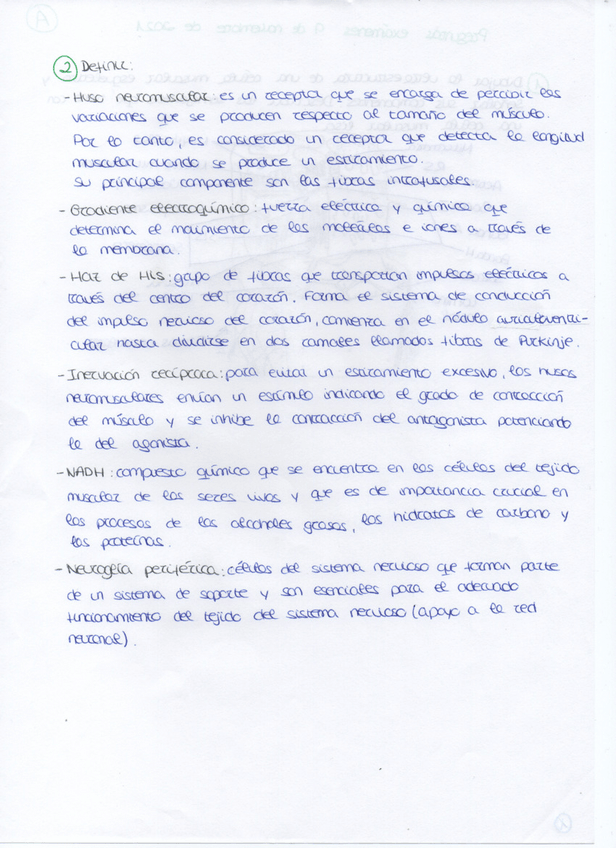 2 Define:
- Huso neuromuscular: es un receptor que se encarga de percibir las
variaciones que se producen respecto al tamaño del músculo.
Por lo tanto, es considerado un receptor que detecta la longitud
muscular cuando se produce un estiramiento.
Su principal componente son las fibras intrafusales.
- Gradiente electroquímico: fuerza eléctrica y química que
determina el movimiento de las moléculas e iones a través de
la membrana.
- Haz de His: grupo de fibras que transportan impulsos eléctricos a
través del centro del corazón. Forma el sistema de conducción
del impulso nervioso del corazón, comienza en el nódulo auriculoventri-
cular hasta dividirse en dos ramales llamados fibras de Purkinje.
- Inervación recíproca: para evitar un estiramiento excesivo, los husos
neuromusculares envían un estímulo indicando el grado de contracción
del músculo y se inhibe la contracción del antagonista potenciando
la del agonista.
- NADH: compuesto químico que se encuentra en las células del tejido
muscular de los seres vivos y que es de importancia crucial en
los procesos de los alcoholes grasos, los hidratos de carbono y
las proteínas.
- Neuroglía periférica: células del sistema nervioso que forman parte
de un sistema de soporte y son esenciales para el adecuado
funcionamiento del tejido del sistema nervioso (apoyo a la red
neuronal).